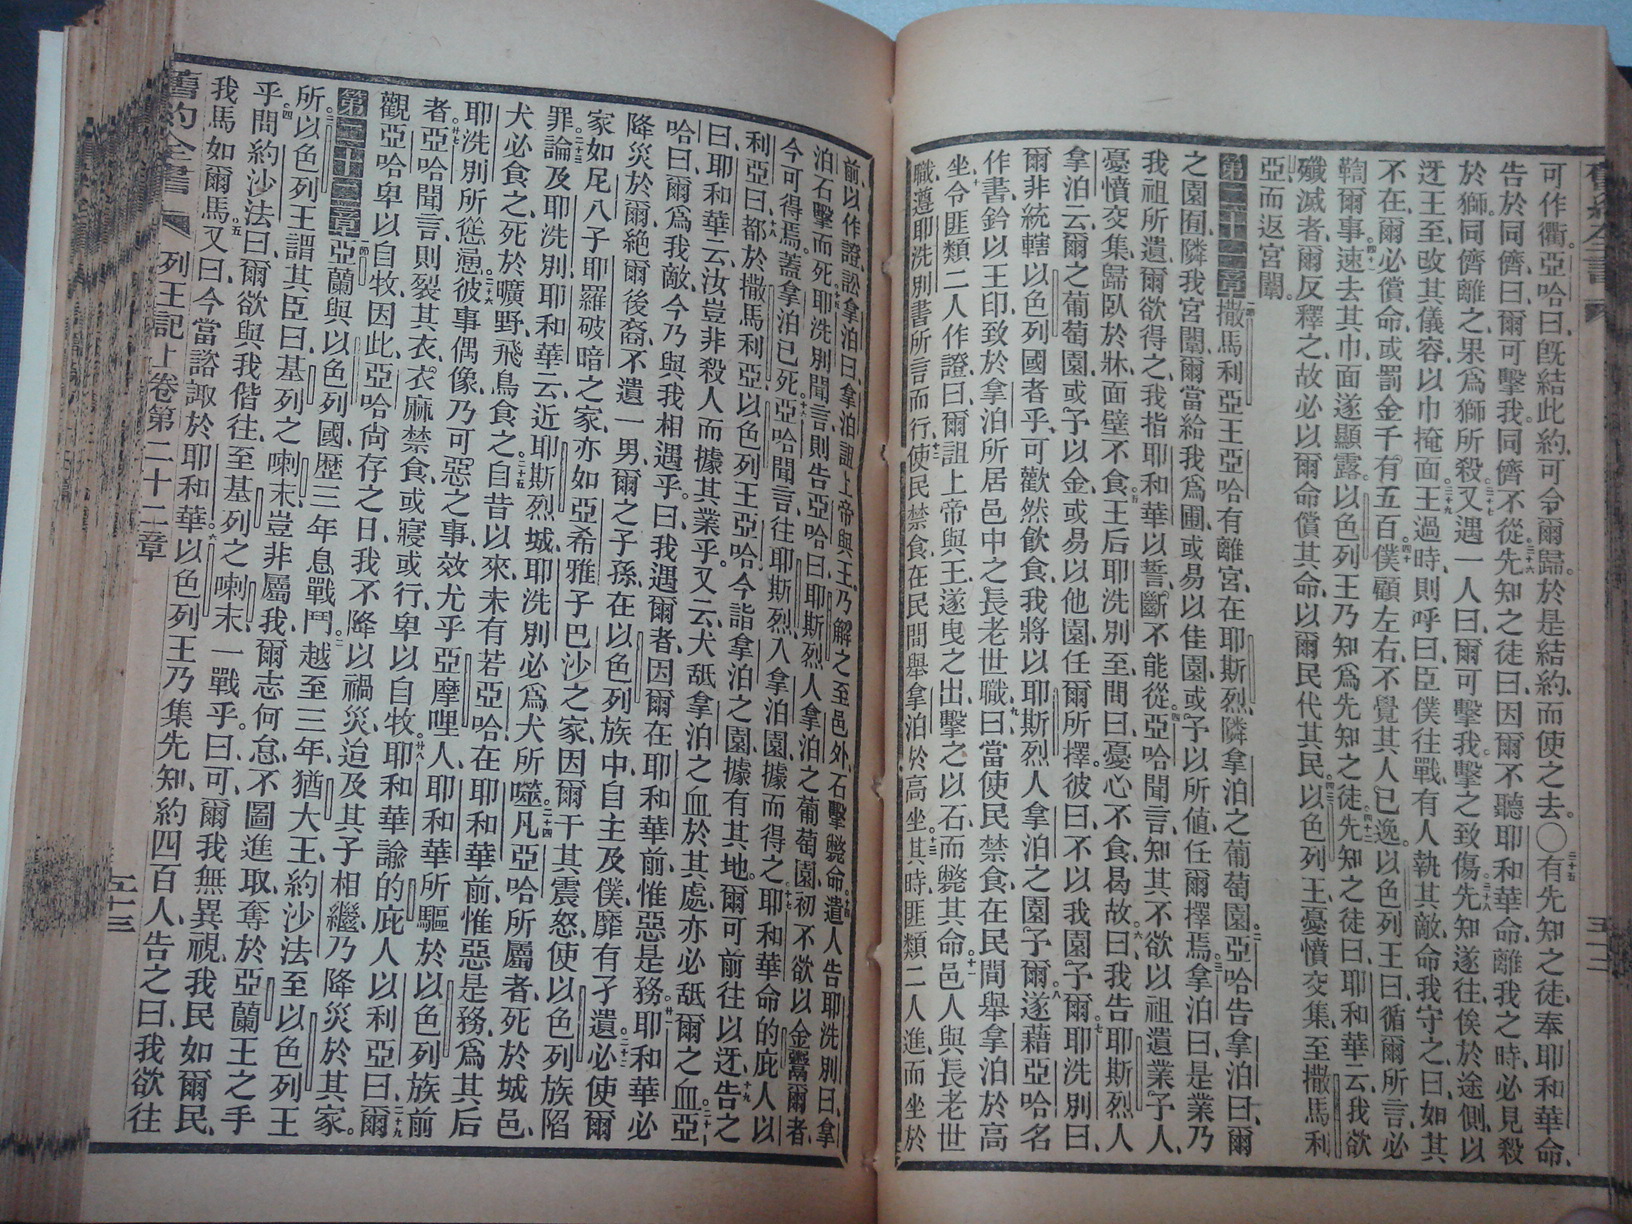 舊約全書
可作衢、亞哈曰、旣結此約、可令爾歸、於是結約、而使之去。〇三十五有先知之徒、奉耶和華命、
告於同儕曰、爾可擊我、同儕不從、三十六先知之徒曰、因爾不聽耶和華命、離我之時、必見殺
於獅、同儕離之、果爲獅所殺、三十七又遇一人曰、爾可擊我、擊之致傷、三十八先知遂往、俟於途側、以
迓王至、改其儀容、以巾掩面、三十九王過時、則呼曰、臣僕往戰、有人執其敵、命我守之、曰、如其
不在、爾必償命、或罰金千有五百、四十僕顧左右、不覺其人已逸。以色列王曰、循爾所言、必
鞫爾事、四十一速去其巾、面遂顯露。以色列王乃知爲先知之徒、四十二先知之徒曰、耶和華云、我欲
殲滅者、爾反釋之、故必以爾命償其命、以爾民代其民。四十三以色列王憂憤交集、至撒馬利
亞而返宮闈。
第二十一章 撒馬利亞王亞哈有離宮、在耶斯烈、隣拿泊之葡萄園。二亞哈告拿泊曰、爾
之園囿、隣我宮闈、爾當給我爲圃、或易以佳園、或予以所値、任爾擇焉。三拿泊曰、是業乃
我祖所遺、爾欲得之、我指耶和華以誓、斷不能從。四亞哈聞言、知其不欲以祖遺業予人、
憂憤交集、歸臥於牀、面壁不食、五王后耶洗別至、問曰、憂心不食、曷故、六曰、我告耶斯烈人
拿泊云、爾之葡萄園、或予以金、或易以他園、任爾所擇。彼曰、不以我園予爾。七耶洗別曰、
爾非統轄以色列國者乎、可歡然飲食、我將以耶斯烈人拿泊之園予爾。八遂藉亞哈名
作書、鈐以王印、致於拿泊所居邑中之長老世職、九曰、當使民禁食、在民間舉拿泊於高
坐、十令匪類二人作證、曰、爾詛上帝與王、遂曳之出、擊之以石而斃其命、十一邑人與長老世
職、遵耶洗別書所言而行、十二使民禁食、在民間舉拿泊於高坐、十三其時匪類二人進、而坐於
前、以作證、訟拿泊曰、拿泊詛上帝與王、乃解之至邑外、石擊斃命。十四遣人告耶洗別曰、拿
泊石擊而死、十五耶洗別聞言、則告亞哈曰、耶斯烈人拿泊之葡萄園、初不欲以金鬻爾者、
今可得焉、蓋拿泊已死、十六亞哈聞言、往耶斯烈、入拿泊園、據而得之、十七耶和華命的庇人以
利亞曰、十八都於撒馬利亞、以色列王亞哈、今詣拿泊之園、據有其地、爾可前往以迓、十九告之
曰、耶和華云、汝豈非殺人而據其業乎、又云、犬舐拿泊之血於其處、亦必舐爾之血。二十亞
哈曰、爾爲我敵、今乃與我相遇乎。曰、我遇爾者、因爾在耶和華前、惟惡是務。廿一耶和華必
降災於爾、絕爾後裔、不遺一男、爾之子孫、在以色列族中、自主及僕、靡有孑遺、二十二必使爾
家如尼八子耶羅破暗之家、亦如亞希雅子巴沙之家、因爾干其震怒、使以色列族陷
罪、二十三論及耶洗別、耶和華云、近耶斯烈城、耶洗別必爲犬所噬、二十四凡亞哈所屬者、死於城邑、
犬必食之、死於曠野、飛鳥食之、二十五自昔以來、未有若亞哈在耶和華前、惟惡是務、爲其后
耶洗別所慫慂、二十六彼事偶像、乃可惡之事、效尤乎亞摩哩人、耶和華所驅於以色列族前
者、廿七亞哈聞言、則裂其衣、衣麻禁食、或寢或行、卑以自牧、廿八耶和華諭的庇人以利亞曰、二十九爾
觀亞哈卑以自牧、因此、亞哈尙存之日、我不降以禍災、迨及其子相繼、乃降災於其家。
第二十二章 亞蘭與以色列國、歷三年息戰鬥、二越至三年、猶大王約沙法至以色列王
所、三以色列王謂其臣曰、基列之喇末、豈非屬我、爾志何怠、不圖進取、奪於亞蘭王之手
乎、四問約沙法曰、爾欲與我偕往、至基列之喇末、一戰乎。曰、可、爾我無異視、我民如爾民、
我馬如爾馬、五又曰、今當諮諏於耶和華、六以色列王乃集先知、約四百人、告之曰、我欲往
舊約全書 列王記上卷第二十二章 五十三